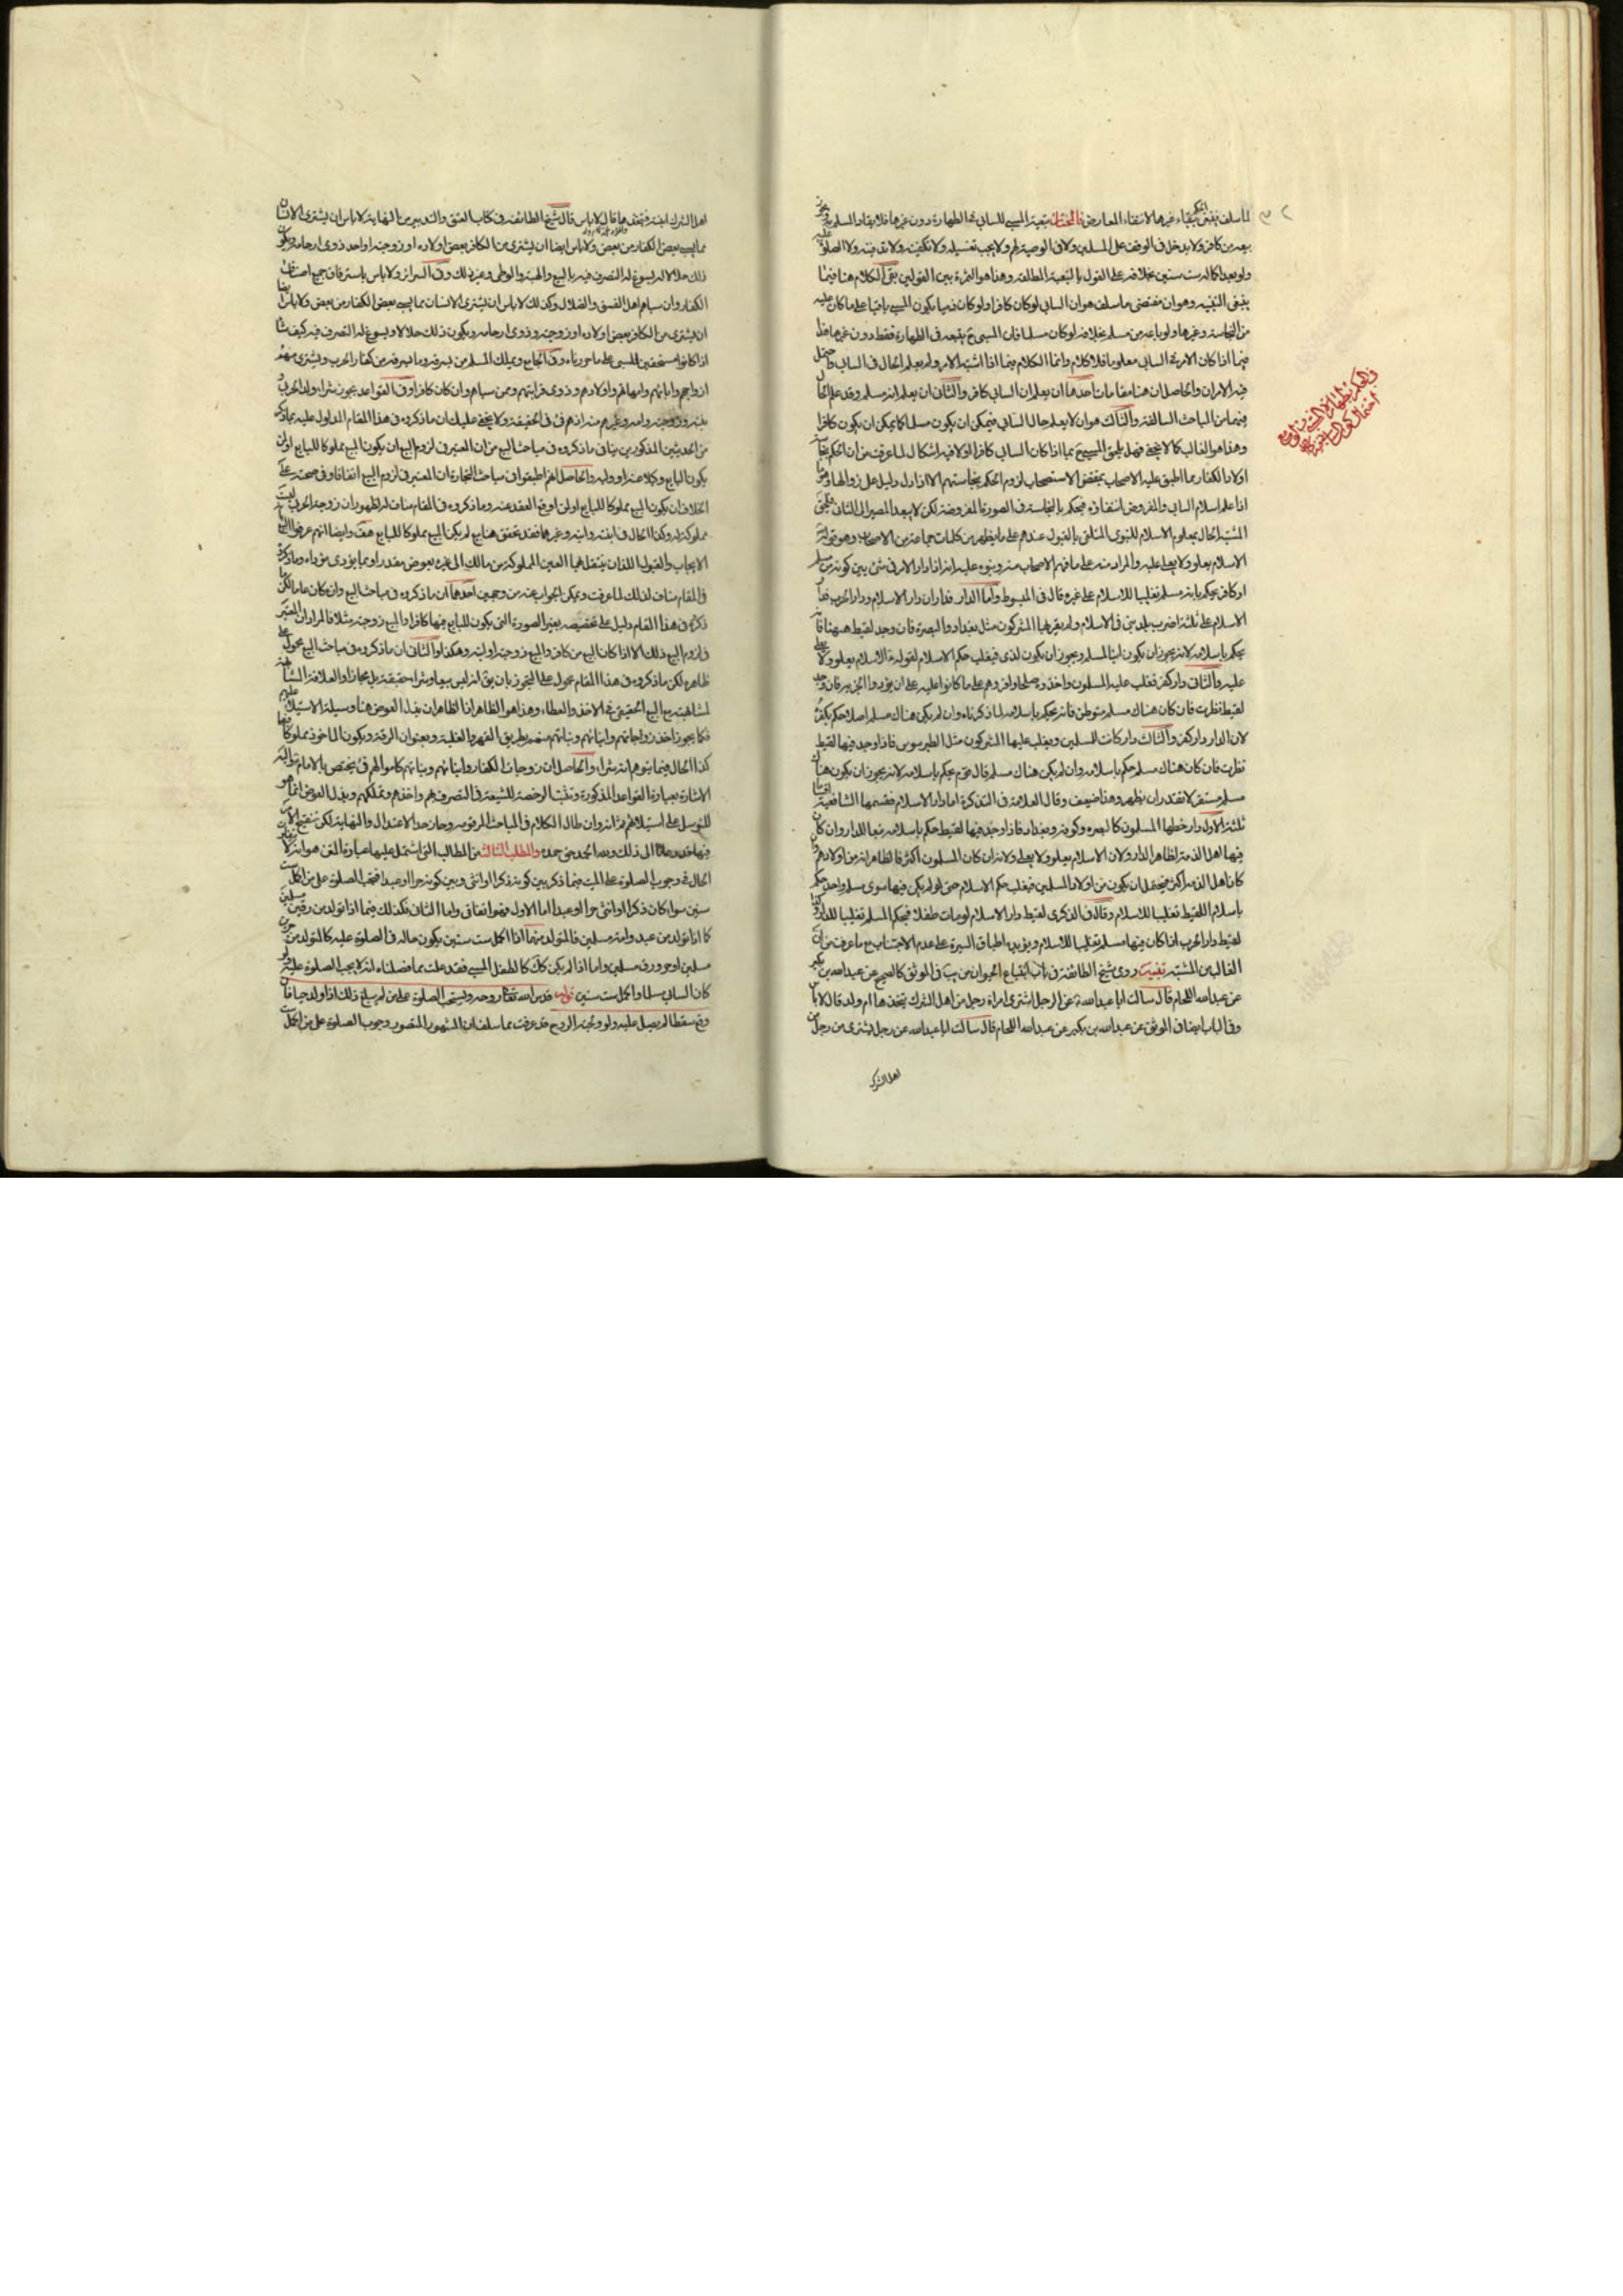 لما سلف فيبقى الحكم ببقاء غيرها لانتفاء المعارض فالمختار تبعية المسبي للسابي في الطهارة دون غيرها فلا يقاد المسلم به
بيعه من كافر ولا يدخل في الوقف على المسلمين ولا في الوصية لهم ولا يجب تغسيله ولا تكفينه ولا تدفينه ولا الصلوة عليه
ولو بعد اكماله ست سنين بخلافه على القول بالتبعية المطلقة وهذا هو الثمرة بين القولين بقي الكلام هنا فيما
ينبغي التنبيه وهو ان مقتضى ما سلف هو ان السابي لو كان كافرا ولو كان ذميا يكون المسبي باقيا على ما كان عليه
من النجاسة وغيرها ولو باعه من مسلم بخلافه لو كان مسلما فان المسبي ح يتبعه في الطهارة فقط دون غيرها هذا
فيما اذا كان الامر في السابي معلوما فلا كلام وانما الكلام فيما اذا اشتبه الامر ولم يعلم الحال في السابي واحتمل
فيه الامران والحاصل ان هنا مقامات احدها ان يعلم ان السابي كافر والثاني ان يعلم انه مسلم وقد علم الحال
فيهما من المباحث السالفة والثالث هو ان لا يعلم حال السابي فيمكن ان يكون مسلما كما يمكن ان يكون كافرا
وهذا هو الغالب كما لا يخفى فهل يلحق المسبي ح بما اذا كان السابي كافرا او لا فيه اشكال لما عرفت من ان الحكم بنجاسة
اولاد الكفار مما اطبق عليه الاصحاب فمقتضى الاستصحاب لزوم الحكم بنجاستهم الا اذا دل دليل على زوالها وهو
اذا علم اسلام السابي والمفروض انتفاؤه فيحكم بالنجاسة في الصورة المفروضة لكن لا يبعد المصير الى الثاني فيلحق
المشتبه الحال بمعلوم الاسلام للنبوي المتلقى بالقبول عندهم على ما يظهر من كلمات جماعة من الاصحاب وهو قوله
الاسلام يعلو ولا يعلى عليه والمراد منه على ما فهم الاصحاب منه وبنوه عليه انه اذا دار الامر في شئ بين كونه من مسلم
او كافر يحكم بانه مسلم تغليبا للاسلام على غيره قال في المبسوط واما الدار فداران دار الاسلام ودار الحرب فدار
الاسلام على ثلثة اضرب بلد بني في الاسلام ولم يقربها المشركون مثل بغداد والبصرة فان وجد لقيط ههنا فانه
يحكم باسلامه لانه يجوز ان يكون ابنا لمسلم ويجوز ان يكون لذمي فيغلب حكم الاسلام لقوله ع الاسلام يعلو ولا يعلى
عليه والثاني دار كفر فغلب عليه المسلمون واخذوه صلحا واقروهم على ما كانوا عليه على ان يؤدوا الجزية فان وجد
لقيط نظرت فان كان هناك مسلم متوطن فانه يحكم باسلامه لما ذكرناه وان لم يكن هناك مسلم اصلا حكم بكفره
لان الدار دار كفر والثالث دار كانت للمسلمين ويغلب عليها المشركون مثل الطرسوس فاذا وجد فيها لقيط
نظرت فان كان هناك مسلم حكم باسلامه وان لم يكن هناك مسلم قال قوم يحكم باسلامه لانه يجوز ان يكون هنا
مسلم مستتر لا تقدر ان يظهر وهذا ضعيف وقال العلامة في التذكرة اما دار الاسلام فقسمها الشافعية
ثلثة الاول دار خطها المسلمون كالبصرة وكوفة وبغداد فاذا وجد فيها لقيط حكم باسلامه تبعا للدار وان كان
فيها اهل الذمة لظاهر الدار ولان الاسلام يعلو ولا يعلى ولانه ان كان المسلمون اكثر فالظاهر انه من اولادهم وان
كان اهل الذمة اكثر فيحتمل ان يكون من اولاد المسلمين فيغلب حكم الاسلام حتى لو لم يكن فيها سوى مسلم واحد حكم
باسلام اللقيط تغليبا للاسلام وقال في الذكرى لقيط دار الاسلام لو مات طفلا فبحكم المسلم تغليبا للدار وكذا
لقيط دار الحرب اذا كان فيها مسلم تغليبا للاسلام ويؤيده اطباق السيرة على عدم الاجتناب مع ما عرفت من ان
الغالب من المشتبه تنبيه روى شيخ الطائفة في باب ابتياع الحيوان من يب في الموثق كالصحيح عن عبدالله بن بكير
عن عبدالله اللحام قال سالت ابا عبدالله ع عن الرجل اشترى امراة رجل من اهل الشرك يتخذها ام ولد قال لا باس
وفي الباب ايضا في الموثق عن عبدالله بن بكير عن عبدالله اللحام قال سالت ابا عبدالله عن رجل يشترى من رجل من
اهل الشرك
اهل الشرك ابنته فيتخذها قال لا باس قال شيخ الطائفة في كتاب العتق والتدبير من النهاية لا باس ان يشترى الانسان
مما يسبي بعض الكفار من بعض ولا باس ايضا ان يشترى من الكافر بعض اولاده او زوجته او احد ذوى ارحامه ويكون
ذلك حلالا له يسوغ له التصرف فيه بالبيع والهبة والوطى وغير ذلك وفي السرائر ولا باس باسترقاق جميع اصناف
الكفار وان سباهم اهل الفسق والضلال وكذلك لا باس ان يشترى الانسان مما يسبي بعض الكفار من بعض ولا باس ايضا
ان يشترى من الكافر بعض اولاده او زوجته وذوى ارحامه ويكون ذلك حلالا ويسوغ له التصرف فيه كيف شاء
اذا كانوا مستحقين للسبي على ما حررناه وفي الجامع ويملك المسلم من يسرقه وما يسرقه من كفار الحرب ويشترى منهم
ازواجهم وابائهم وامهاتهم واولادهم وذوى قرابتهم ومن سباهم وان كان كافرا وفي القواعد يجوز شراء ولد الحربي
بنته وزوجته وامه وغيرهم منه اذ هم فئ في الحقيقة ولا يخفى عليك ان ما ذكروه في هذا المقام المدلول عليه بما ذكر
من الحديثين المذكورين ينافي ما ذكروه في مباحث البيع من ان المعتبر في لزوم البيع ان يكون المبيع مملوكا للبايع او لمن
يكون البايع وكيلا عنه او وليه والحاصل انهم اطبقوا في مباحث التجارة ان المعتبر في لزوم البيع اتفاقا وفي صحته على
الخلاف ان يكون المبيع مملوكا للبايع او لمن اوقع العقد عنه وما ذكروه في المقام مناف له لظهور ان زوجة الحربي ليست
مملوكة له وكذا الحال في ابنته وابنه وغيرهما فقد تحقق هنا بيع لم يكن المبيع مملوكا للبايع هف وايضا انهم عرفوا البيع
الايجاب والقبول اللذان ينتقل بهما العين المملوكة من مالك الى غيره بعوض مقدر او بما يؤدى مؤداه وما ذكروه
في المقام مناف لذلك لما عرفت ويمكن الجواب عنه من وجهين احدهما ان ما ذكروه في مباحث البيع وان كان عاما لكن ما
ذكروه في هذا المقام دليل على تخصيصه بغير الصورة التي يكون للبايع فيها كافرا والمبيع زوجته مثلا فالمراد ان المعتبر
في لزوم البيع ذلك الا اذا كان البيع من كافر والمبيع زوجته او ابنته وهكذا والثاني ان ما ذكروه في مباحث البيع محمول على
ظاهره لكن ما ذكروه في هذا المقام محمول على التجوز بان يق انه ليس بيعا وشراء حقيقة بل مجازا والعلاقة المشابهة
لمشابهته مع البيع الحقيقي في الاخذ والعطاء وهذا هو الظاهر اذ الظاهر ان بذل العوض هنا وسيلة الاستيلاء عليهم
فكما يجوز اخذ زوجاتهم وابنائهم وبناتهم منهم بطريق القهر والغلبة وبعنوان الرقية ويكون الماخوذ مملوكا
كذا الحال فيما يتوهم انه شراء والحاصل ان زوجات الكفار وابنائهم وبناتهم كاموالهم فئ يختص بالامام
الاشارة بعبارة القواعد المذكورة وثبت الرخصة للشيعة في التصرف بهم واخذهم وتملكهم وبذل العوض انما هو
للتوسل على استيلائهم ثم انه وان طال الكلام في المباحث المرقومه وجاز حد الاعتدال والنهاية لكن تنقيح الامر
فيها قد دعانا الى ذلك ولله الحمد حق حمده والمطلب الثالث من المطالب التي اشتمل عليها عبارة المتن هو انه لا
الحال في وجوب الصلوة على الميت فيما ذكر بين كونه ذكرا او انثى وبين كونه حرا او عبدا فتجب الصلوة على من اكمل ست
سنين سواء كان ذكرا او انثى حرا او عبدا اما الاول فهو اتفاقي واما الثاني فكذلك فيما اذا تولد من رقين مسلمين
كما اذا تولد من عبد وامة مسلمين فالمتولد منهما اذا اكمل ست سنين يكون حاله في الصلوة عليه كالمتولد من حرين
مسلمين او حر ورق مسلمين واما اذا لم يكن كك كالطفل المسبي فقد علمت مما فصلناه انه لا يجب الصلوة عليه ولو
كان السابي مسلما واكمل ست سنين قوله قدس الله تعالى روحه ويستحب الصلوة على من لم يبلغ ذلك اذا ولد حيا فان
وقع سقطا لم يصل عليه ولو ولجته الروح قد عرفت مما سلف ان المشهور المنصور وجوب الصلوة على من اكمل ست